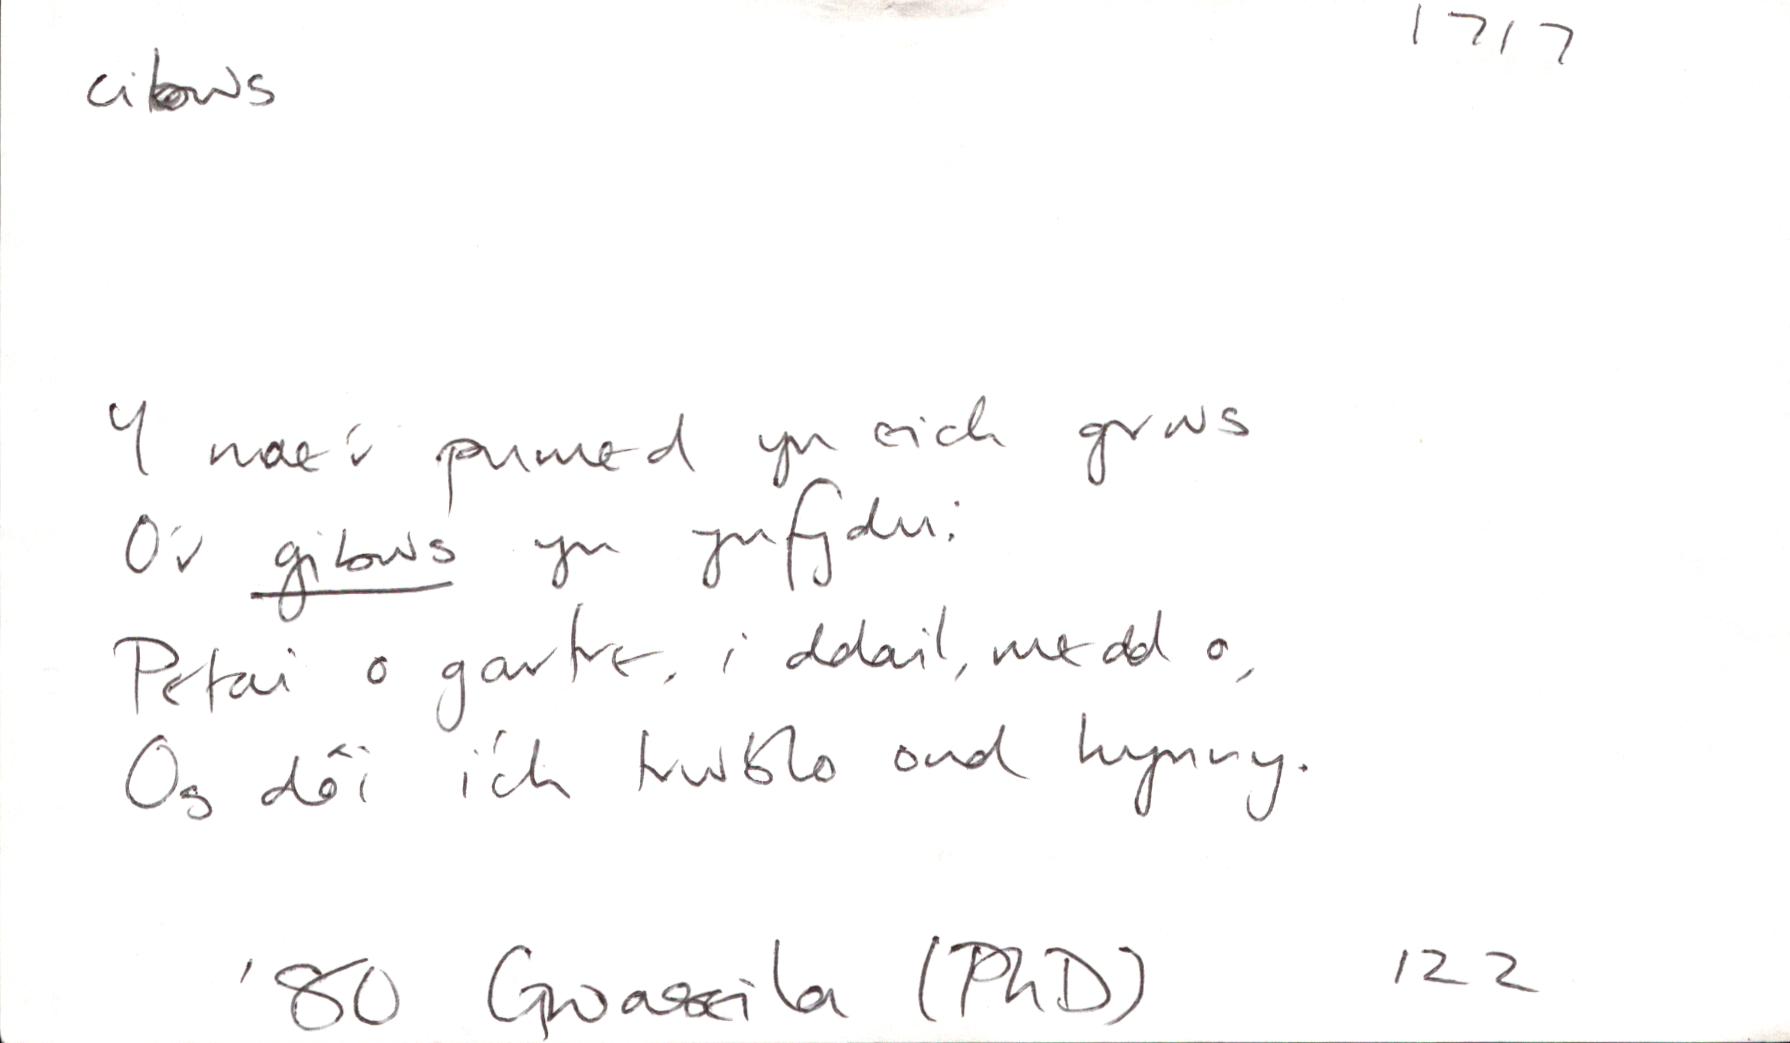 cibws 1717
Y mae'r pumed yn eich grws
O'r gibws yn ynfydu;
Petai o gartre, i ddail, medd o,
Os dôi i'ch trwblo ond hynny.
'80 Gwaseila (PhD) 122